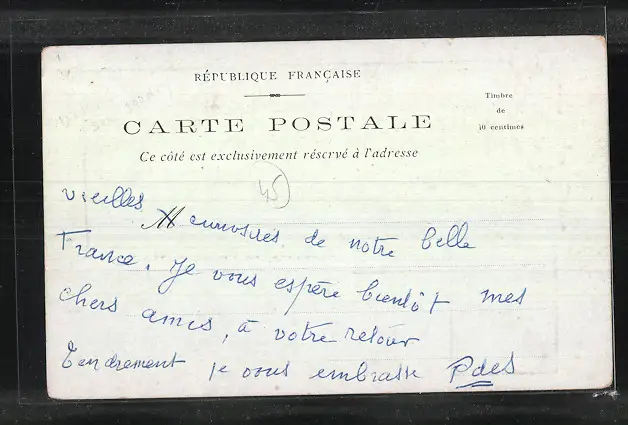 RÉPUBLIQUE FRANÇAISE
CARTE POSTALE
Timbre
de
10 centimes
Ce côté est exclusivement réservé à l'adresse
45
vieilles
curiosités de notre belle
France. Je vous espère bientôt mes
chers amis, à votre retour
Tendrement je vous embrasse